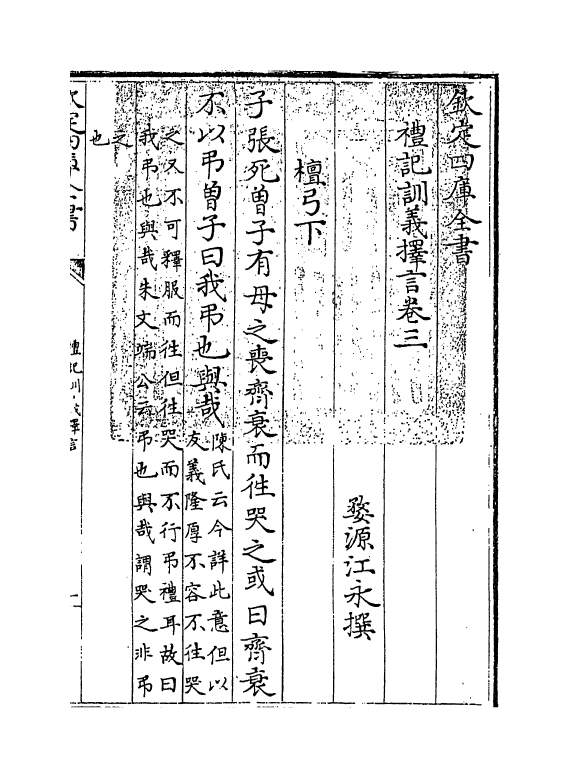 欽定四庫全書
禮記訓義擇言卷三
婺源江永撰
檀弓下
子張死曾子有母之喪齊衰而往哭之或曰齊衰
不以弔曾子曰我弔也與哉
陳氏云今詳此意但以
友義隆厚不容不往哭
之又不可釋服而往但往哭而不行弔禮耳故曰
我弔也與哉朱文端公云弔也與哉謂哭之非弔
之
也
欽定四庫全書
禮記訓義擇言
一